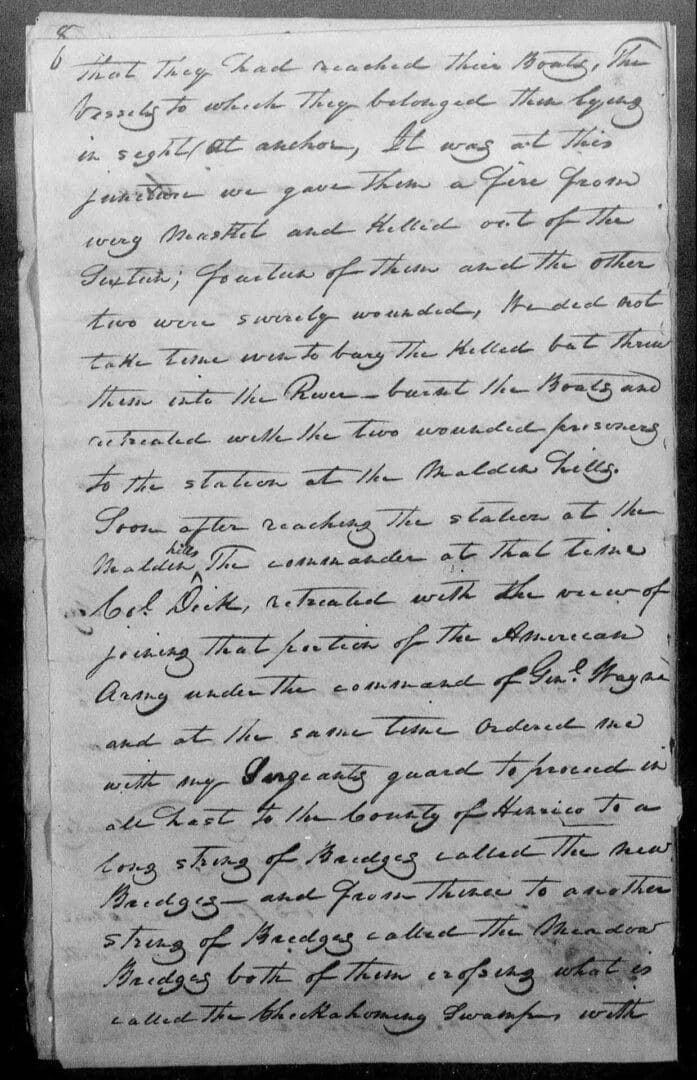 8
6
that they had reached their Boats, The
Vessels to which they belonged then lying
in seght at anchor, It was at this
juncture we gave them a fire from
every Masket and Killed out of the
Sixteen; fourteen of them and the other
two were severely wounded, We ded not
take time even to bury the Killed but threw
them into the River – burnt the Boats and
retreated with the two wounded prisoners
to the station at the Malden hills.
Soon after reaching the station at the
Malden hills The commander at that time
Col. Dick, retreated with the view of
joining that portion of the American
Army under the command of Genl. Wayne
and at the same time ordered me
with my Sergeants guard to proceed in
all hast to the County of Henrico to a
long string of Bredges called the new
Bredges – and from thence to another
string of Bredges called the Meadow
Bredges both of them crossing what is
called the Checkahominy Swamps with